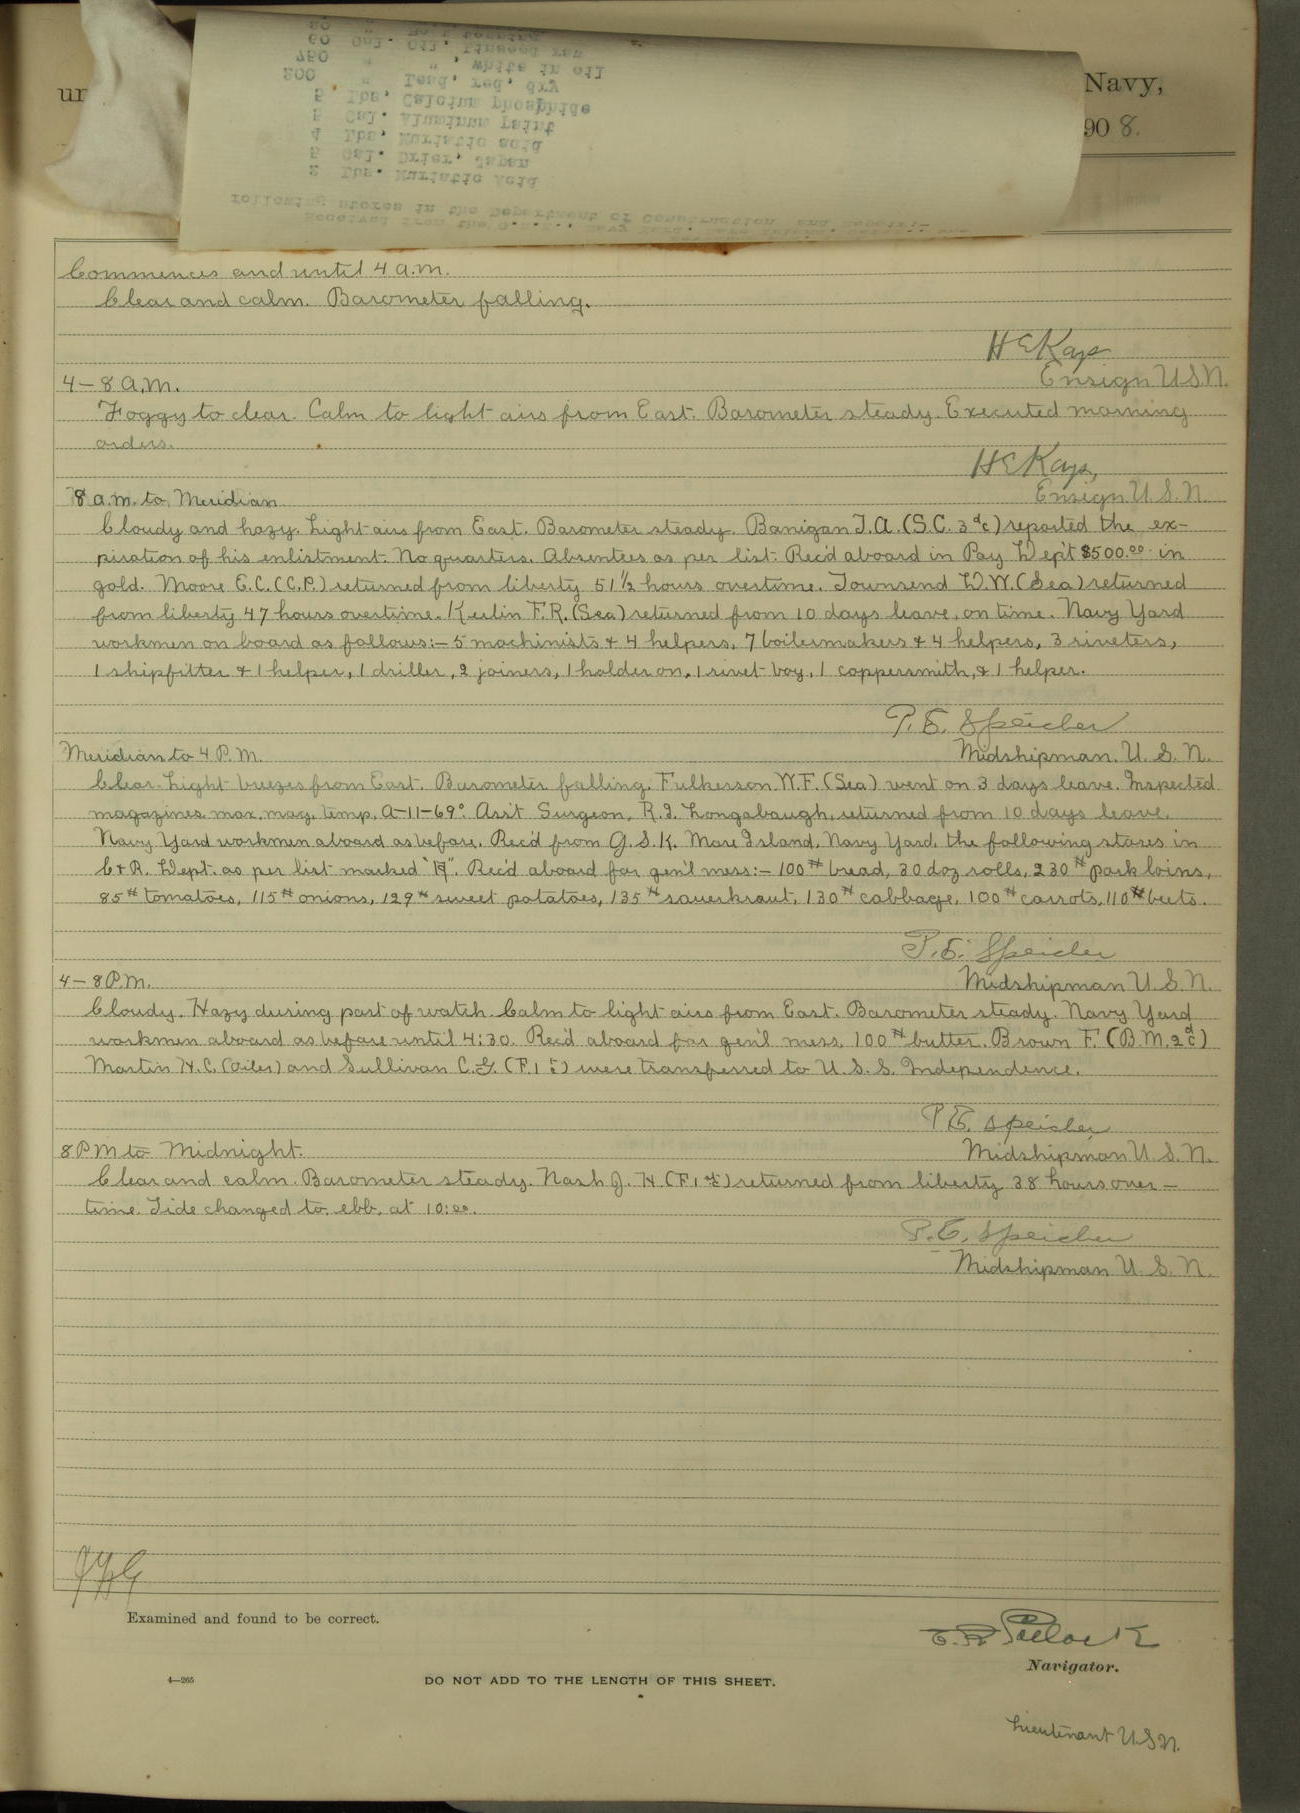 80 " "
60 Gal. Oil, Linseed raw
750 " " , white in oil
200 " Lead, red, dry
5 Lbs. Calcium phosphide
5 Gal. Aluminum paint
4 Lbs. Muriatic acid
5 Gal. Drier, Japan
2 Lbs. Muriatic Acid
following stores in the Department of Construction and Repair:—
Received from the Navy Yard, Mare Island,
Navy,
908.
Commences and until 4 a.m.
Clear and calm. Barometer falling.
H E Kays
Ensign U.S.N.
4–8 A.M.
Foggy to clear. Calm to light airs from East. Barometer steady. Executed morning
orders.
H E Kays,
Ensign U.S.N.
8 a.m. to Meridian
Cloudy and hazy. Light airs from East. Barometer steady. Banigan T.A. (S.C. 3dc) reported the ex-
piration of his enlistment. No quarters. Absentees as per list. Rec'd aboard in Pay Dep't $500.00 in
gold. Moore E.C. (C.P.) returned from liberty 51½ hours overtime. Townsend W.W. (Sea) returned
from liberty 47 hours overtime. Kerlin F.R. (Sea) returned from 10 days leave, on time. Navy Yard
workmen on board as follows:– 5 machinists & 4 helpers, 7 boilermakers & 4 helpers, 3 riveters,
1 shipfitter & 1 helper, 1 driller, 2 joiners, 1 holder on, 1 rivet-boy, 1 coppersmith, & 1 helper.
P. E. Speicher
Midshipman. U. S. N.
Meridian to 4 P.M.
Clear. Light breezes from East. Barometer falling. Fulkerson W.F. (Sea) went on 3 days leave. Inspected
magazines, max. mag. temp. A-11-69°. Ass't Surgeon, R. I. Longabaugh, returned from 10 days leave.
Navy Yard workmen aboard as before. Rec'd from G. S. K. Mare Island, Navy Yard, the following stores in
C & R. Dept. as per list marked "A". Rec'd aboard for gen'l mess:– 100# bread, 30 doz rolls, 230# pork loins,
85# tomatoes, 115# onions, 129# sweet potatoes, 135# sauerkraut, 130# cabbage, 100# carrots, 110# beets.
P. E. Speicher
Midshipman U. S. N.
4–8 P.M.
Cloudy. Hazy during part of watch. Calm to light airs from East. Barometer steady. Navy Yard
workmen aboard as before until 4:30. Rec'd aboard for gen'l mess, 100# butter. Brown F. (B.M. 2dc)
Martin H.C. (Oiler) and Sullivan C.G. (F. 1 c) were transferred to U. S. S. Independence.
P. E. Speicher
Midshipman U. S. N.
8 P M to Midnight.
Clear and calm. Barometer steady. Nash J. H. (F. 1 c) returned from liberty 38 hours over–
time. Tide changed to ebb, at 10:00.
P. E. Speicher
Midshipman U. S. N.
Examined and found to be correct.
Navigator.
4—265
DO NOT ADD TO THE LENGTH OF THIS SHEET.
Lieutenant U.S.N.